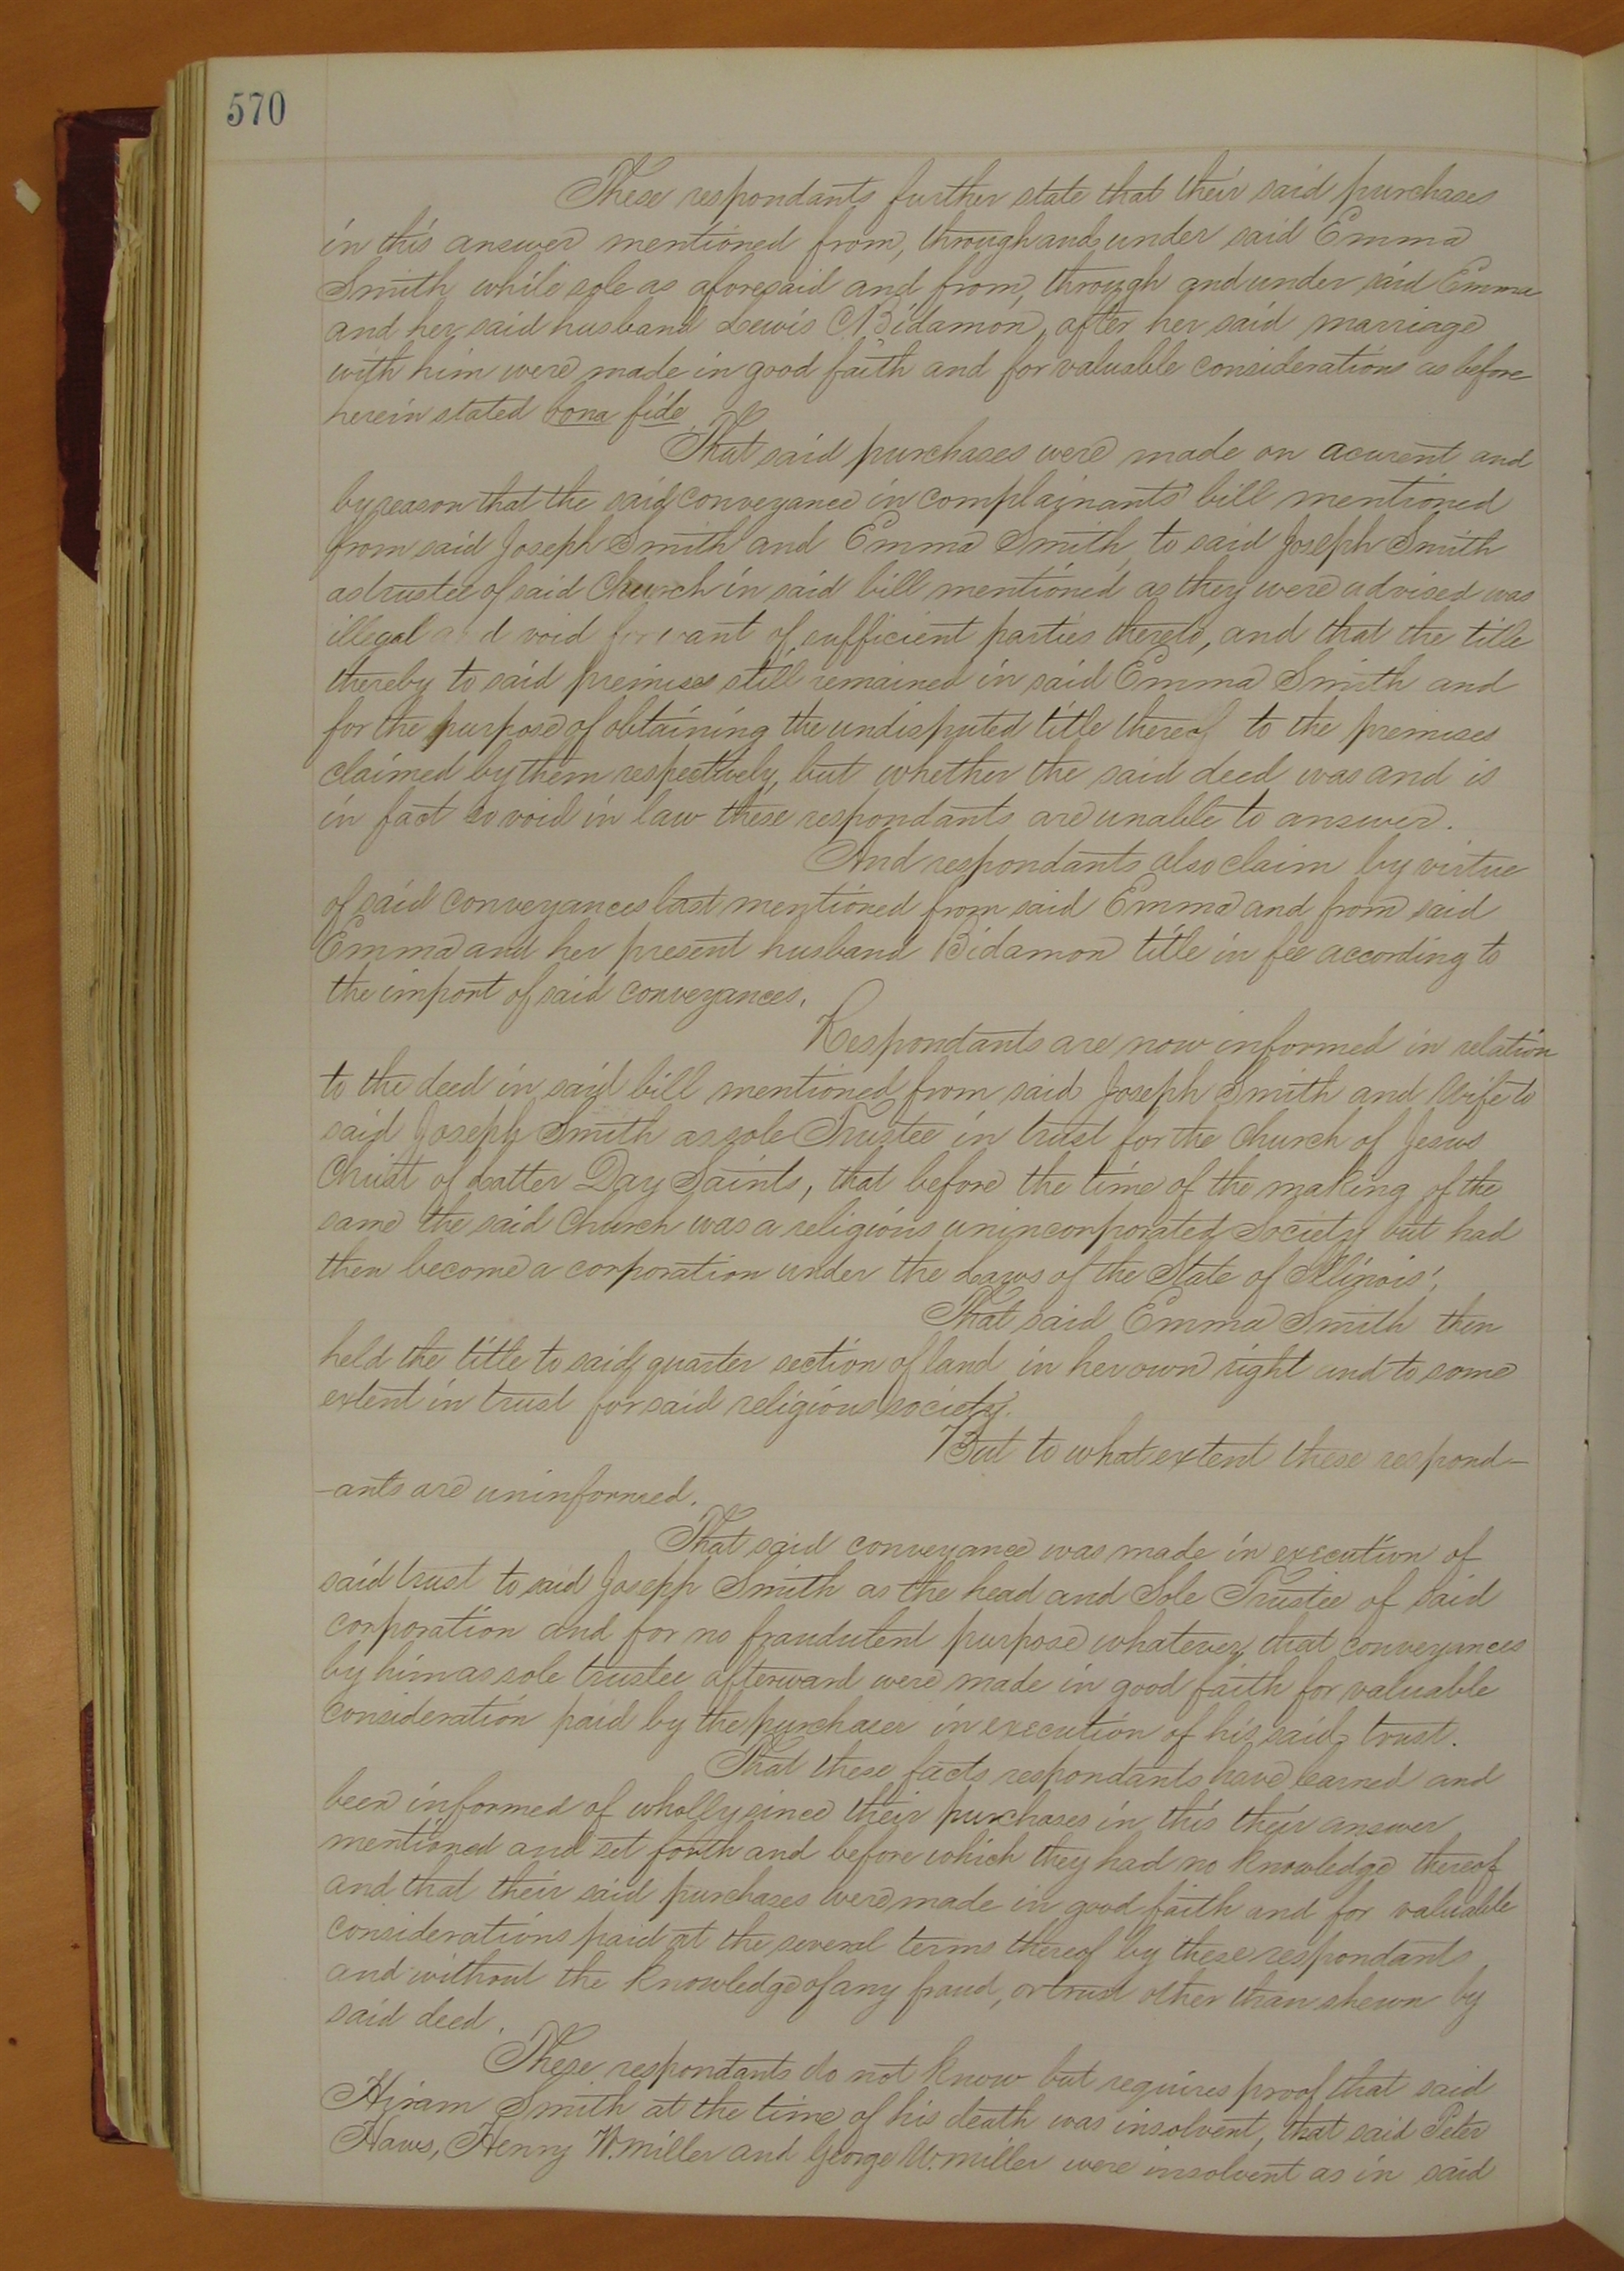 570
These respondants further state that their said purchases
in this answer mentioned from, through and under said Emma
Smith while sole as aforesaid and from, through and under said Emma
and her said husband Lewis C. Bidamon, after her said marriage
with him were made in good faith and for valuable considerations as before
herein stated bona fide.
That said purchases were made on acurent and
by reason that the said conveyance in complainants' bill mentioned
from said Joseph Smith and Emma Smith, to said Joseph Smith
as trustee of said Church in said bill mentioned as they were advised was
illegal and void for want of sufficient parties thereto, and that the title
thereby to said premises still remained in said Emma Smith and
for the purpose of obtaining the undisputed title thereof to the premises
claimed by them respectively, but whether the said deed was and is
in fact so void in law these respondants are unable to answer.
And respondants also claim by virtue
of said conveyances last mentioned from said Emma and from said
Emma and her present husband Bidamon title in fee according to
the import of said conveyances.
Respondants are now informed in relation
to the deed in said bill mentioned from said Joseph Smith and Wife to
said Joseph Smith as sole Trustee in trust for the Church of Jesus
Christ of Latter Day Saints, that before the time of the making of the
same the said Church was a religious unincorporated Society but had
then become a corporation under the Laws of the State of Illinois.
That said Emma Smith then
held the title to said quarter section of land in her own right and to some
extent in trust for said religious society.
But to what extent these respond-
-ants are uninformed.
That said conveyance was made in execution of
said trust to said Joseph Smith as the head and Sole Trustee of said
corporation and for no fraudulent purpose whatever, that conveyances
by him as sole trustee afterward were made in good faith for valuable
consideration paid by the purchaser in execution of his said trust.
That these facts respondants have learned and
been informed of wholly since their purchases in this their answer
mentioned and set forth and before which they had no knowledge thereof
and that their said purchases were made in good faith and for valuable
considerations paid at the several terms thereof by these respondants
and without the knowledge of any fraud, or trust other than shewn by
said deed.
These respondants do not know but requires proof that said
Hiram Smith at the time of his death was insolvent, that said Peter
Haws, Henry W. Miller and George W. Miller were insolvent as in said